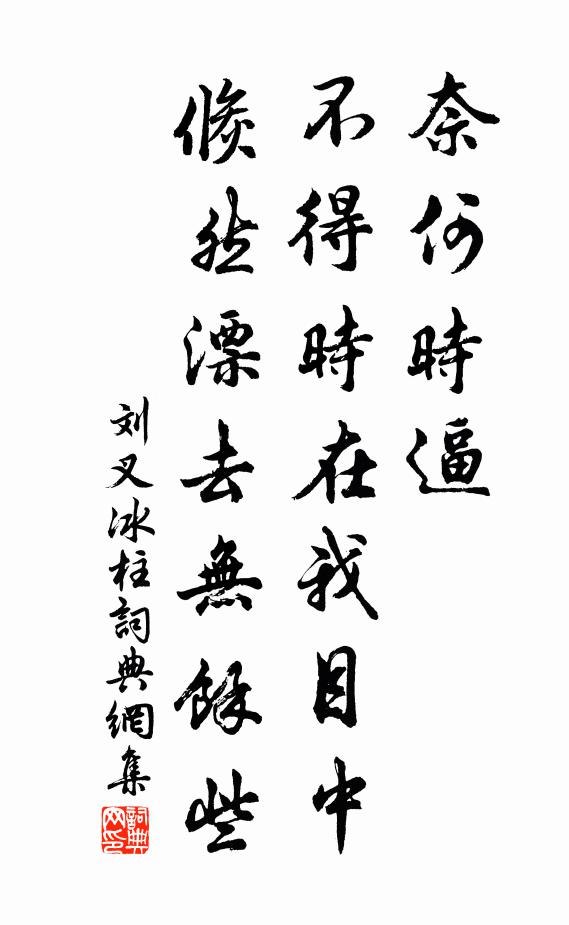 奈何時逼
不得時在我目中
倐然漂去無餘些
刘叉冰柱詞典網集
詞典网印